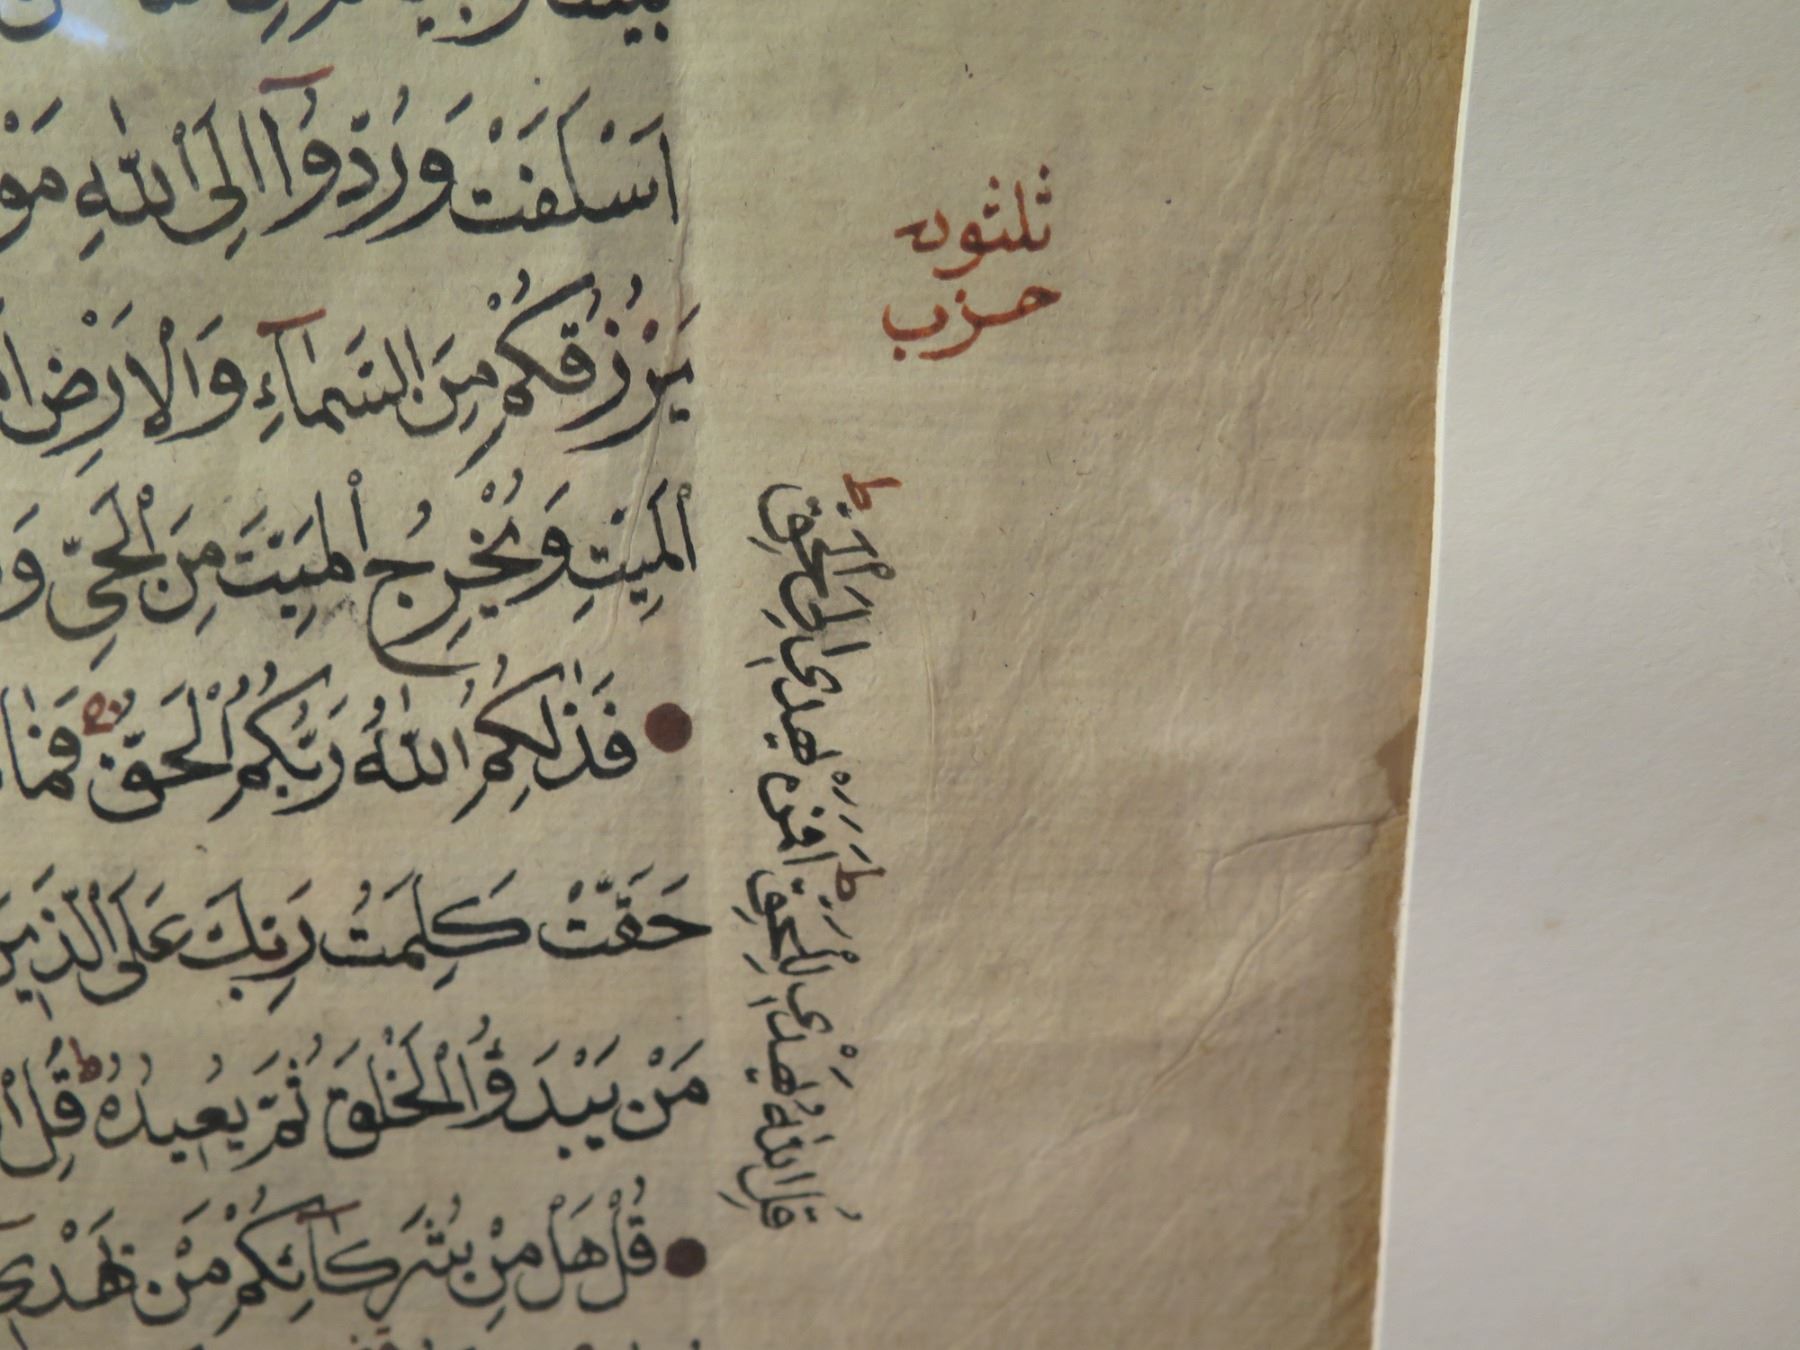 اَسْلَفَتْ وَرُدّوُٓا اِلَى اْللّٰهِ
يَرْزُقُكُمْ مِنَ السَّمَآءِ وَالْاَرْضِ
اْلمَيِّتِ وَيُخْرِجُ اْلمَيِّتَ مِنَ اْلحَىِّ
فَذٰلِكُمُ اللّٰهُ رَبُّكُمُ اْلحَقُّ فَمٰا
حَقَّتْ كَلِمَتُ رَبِّكَ عَلَى اْلَّذِينَ
مَنْ يَبْدَؤُا اْلخَلْقَ ثُمَّ يُعِيدُهُ ط قُلِ
قُلْ هَلْ مِنْ شُرَكَآئِكُمْ مَنْ يَهْدِى
ثلثون
حزب
قُلِ اللّٰهُ يَهْدِى لِلْحَقِّ ط اَفَمَنْ يَهْدِى اِلَى اْلحَقِّ ط